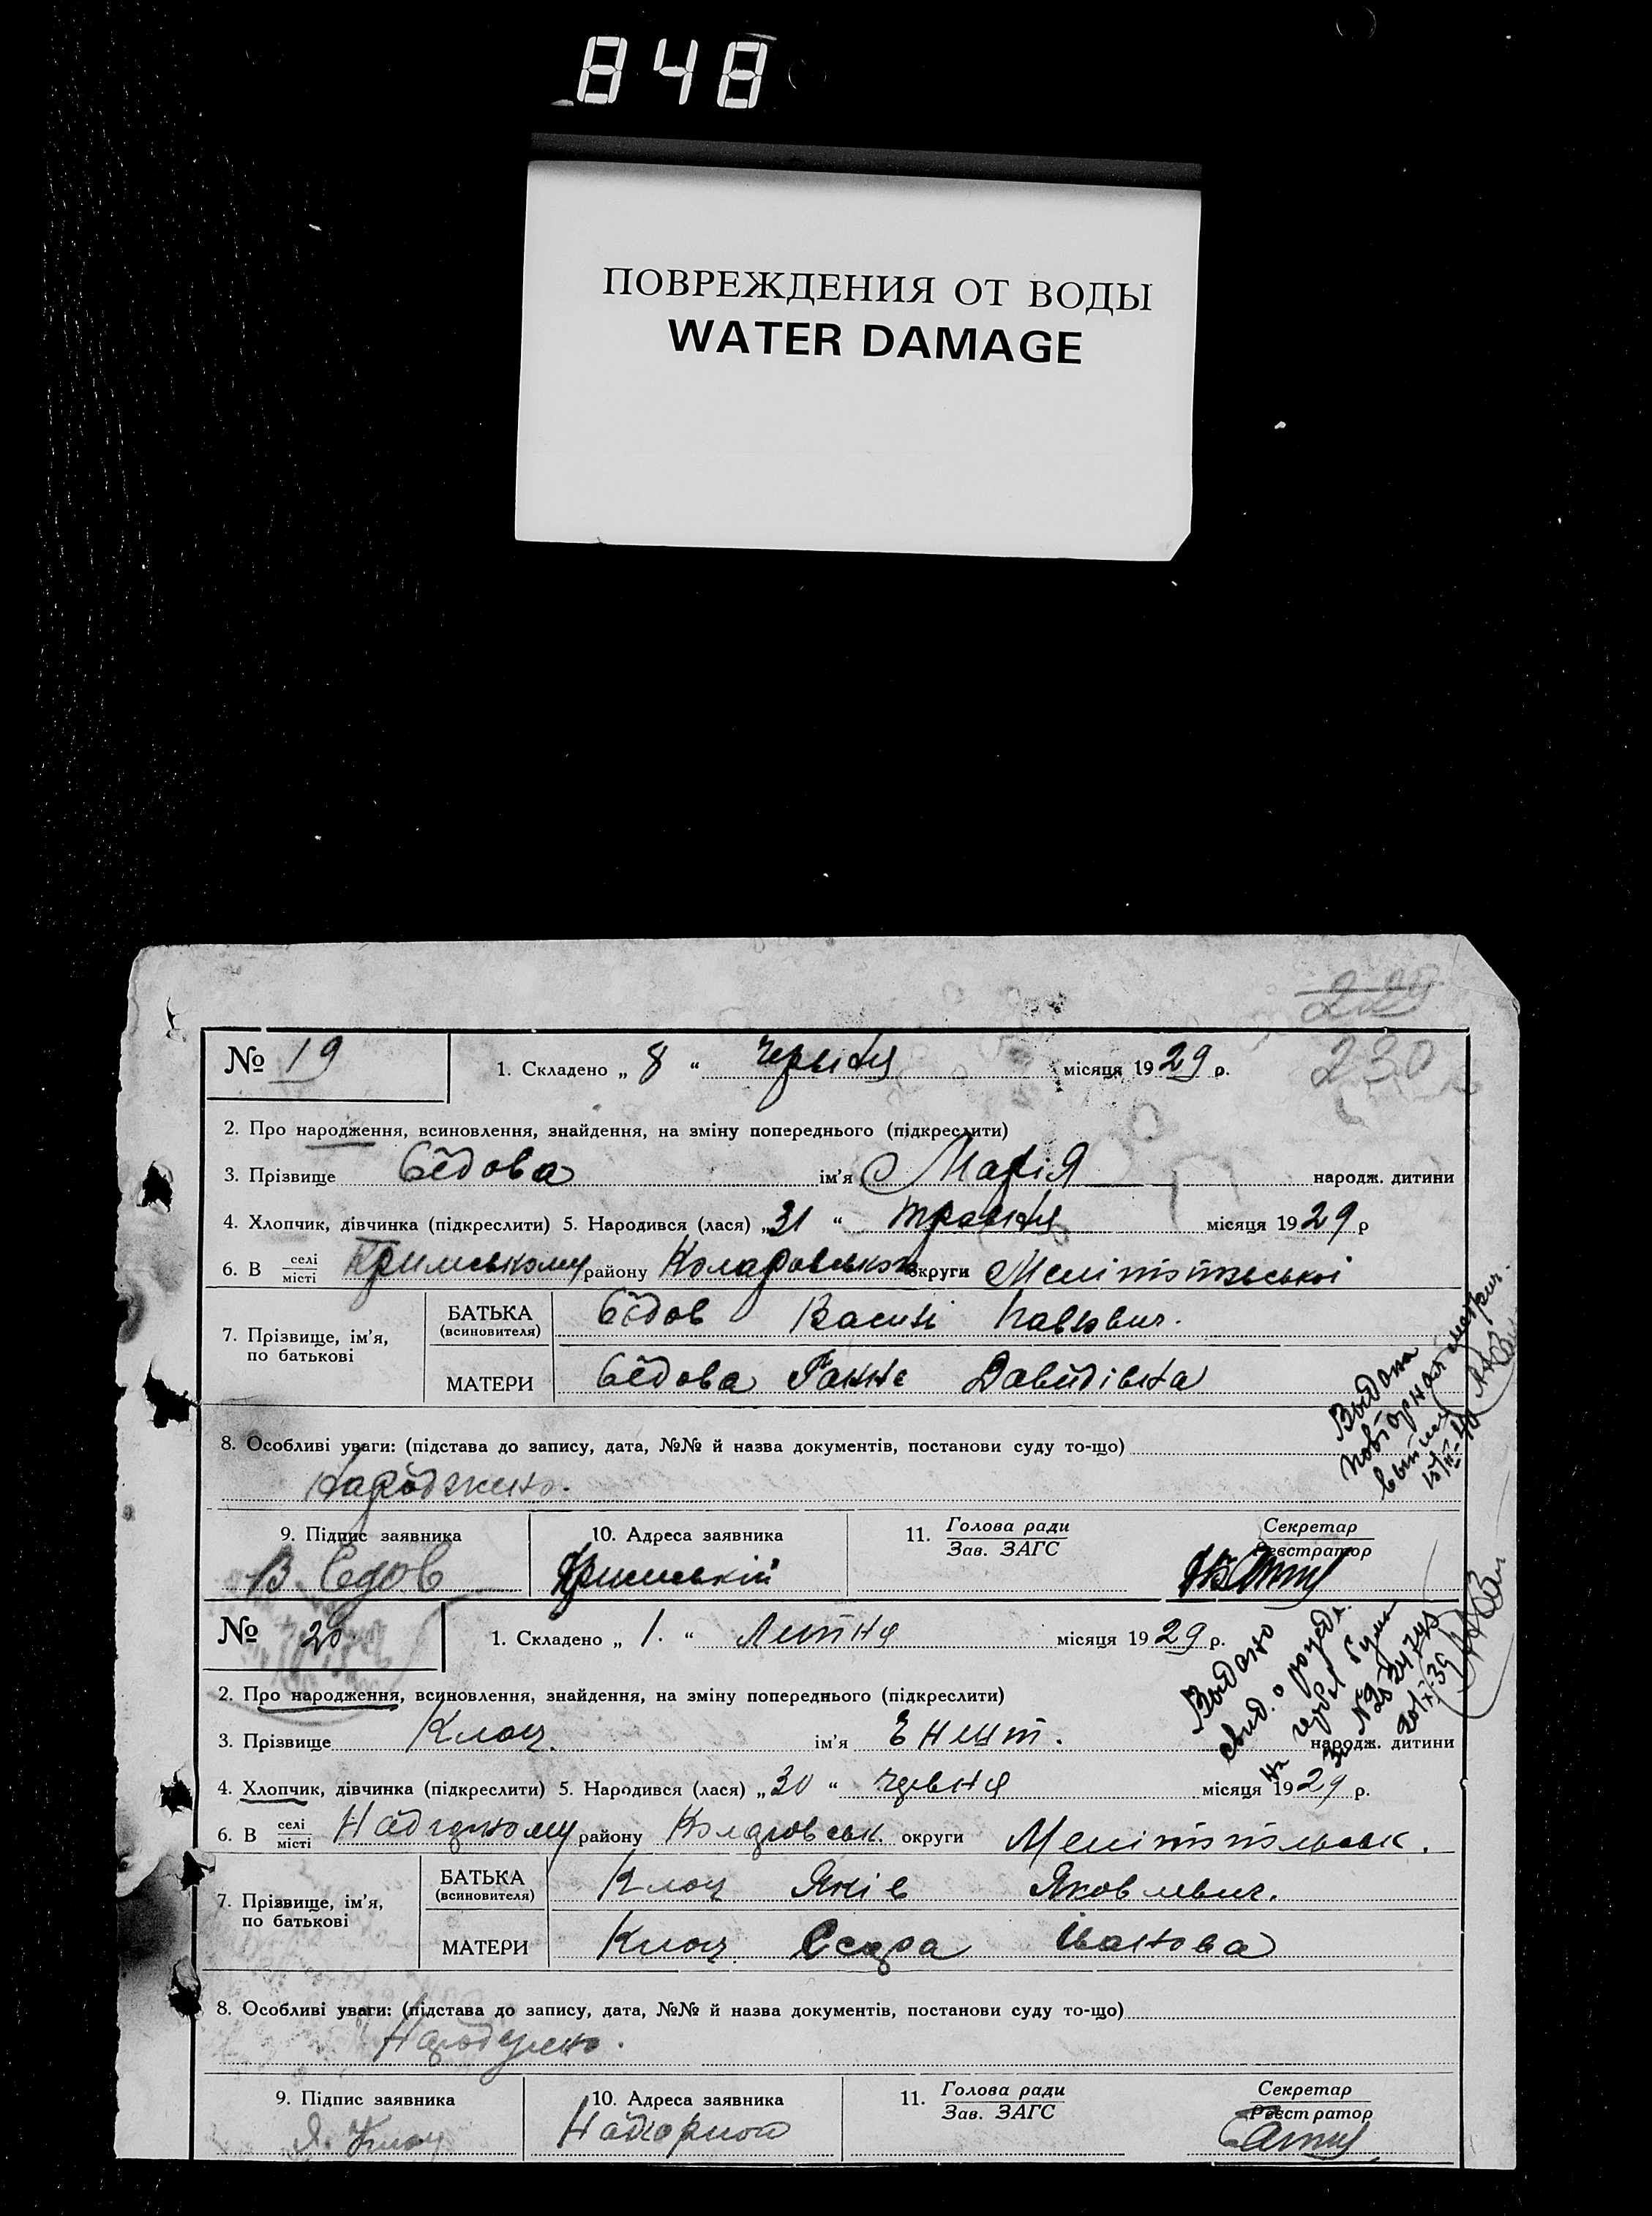 848
ПОВРЕЖДЕНИЯ ОТ ВОДЫ
WATER DAMAGE
229
230
№ 19
1. Складено „ 8 “ червня місяця 1929 р.
2. Про народження, всиновлення, знайдення, на зміну попереднього (підкреслити)
3. Прізвище Сєдова ім'я Марія народж. дитини
4. Хлопчик, дівчинка (підкреслити) 5. Народився (лася) „ 31 “ травня місяця 1929 р
6. В селі місті Кримському району Коларовської округи Мелітопільської
7. Прізвище, ім'я, по батькові
БАТЬКА (всиновителя) Сєдов Василь Павлович.
МАТЕРИ Сєдова Ганна Давидівна
8. Особливі уваги: (підстава до запису, дата, №№ й назва документів, постанови суду то-що)
Народжено.
Выдана повторная
9. Підпис заявника
10. Адреса заявника
11. Голова ради
Зав. ЗАГС
Секретар
Реєстратор
В. Седов
Кримський
№ 20.
1. Складено „ 1. “ Липня місяця 1929 р.
2. Про народження, всиновлення, знайдення, на зміну попереднього (підкреслити)
3. Прізвище Клоц. ім'я народж. дитини
4. Хлопчик, дівчинка (підкреслити) 5. Народився (лася) „ 30 “ червня місяця 1929 р.
6. В селі місті району округи Мелітопільськ.
7. Прізвище, ім'я, по батькові
БАТЬКА (всиновителя) Клоц Яків Яковлевич.
МАТЕРИ Клоц Іванова
8. Особливі уваги: (підстава до запису, дата, №№ й назва документів, постанови суду то-що)
Народжено.
Выдано свид. о рожд.
9. Підпис заявника
10. Адреса заявника
11. Голова ради
Зав. ЗАГС
Секретар
Реєстратор
Я. Клоц